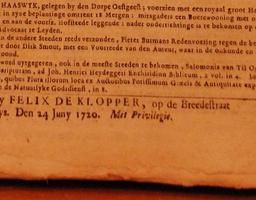 HAASWYK, gelegen by den Dorpe Oestgeest; voorzien met een royaal groot He
in syne beplantinge omtrent 18 Mergen: mitsgaders een Bouwwooning met
en aan de voorſz. Hofſtede leggende: nader onderrichtinge is te bekomen op
Advocaat te Leyden.
in de andere Steden reeds verzonden, Pieter Burmans Redenvoering tegen de be
door Dirk Smout, met een Voorreede van den Auteur, waar in de oukunde en
word uytgegeven, ook in de meeſte Steden te bekomen, Salomonis van Til Op
ſcripturam, ad Joh. Henrici Heydeggeri Enchiridion Biblicum, 2 vol. in 4. Lo
quibus Flura illorum loca ex Auctoribus Potiſſimum Græcis & Antiquitate exp
de Natuurlyke Godsdienſt, in 8.
y FELIX DE KLOPPER, op de Breedeſtraat
ys. Den 24 Juny 1720. Met Privilegie.